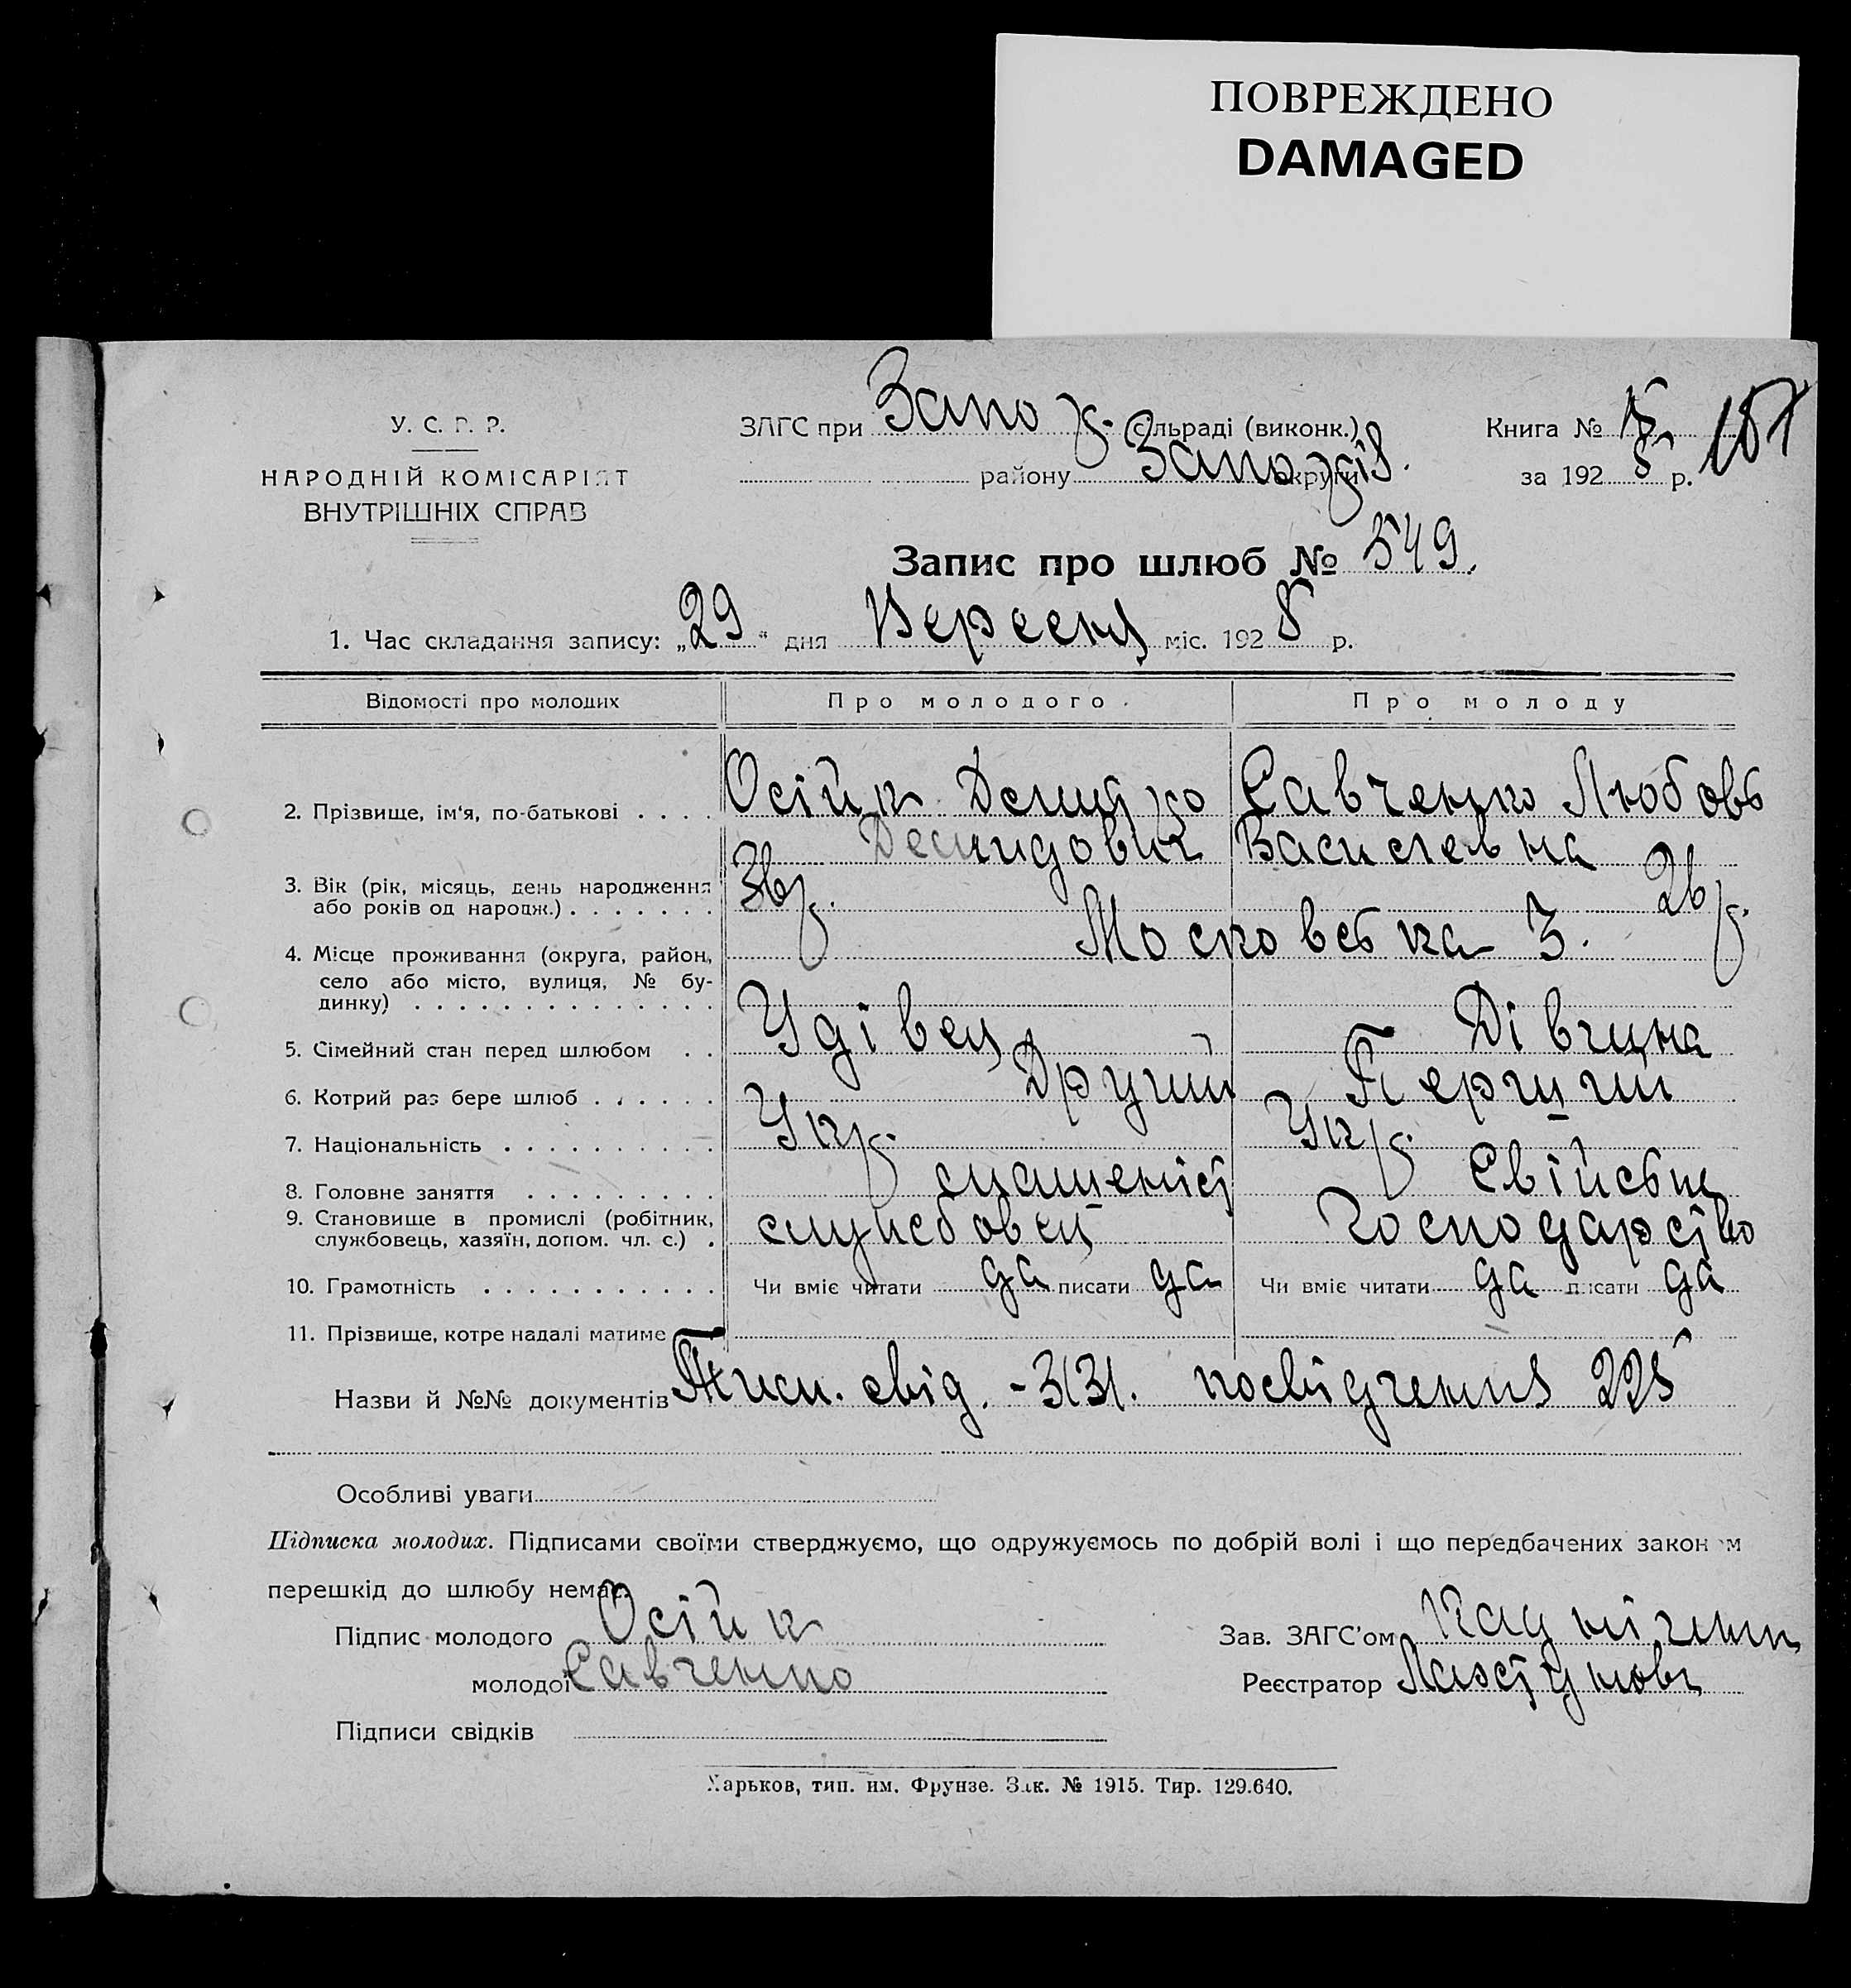 ПОВРЕЖДЕНО
DAMAGED
У. С. Р. Р.
НАРОДНІЙ КОМІСАРІЯТ
ВНУТРІШНІХ СПРАВ
ЗАГС при Запор. сільраді (виконк.)
району Запоріз. округи
Книга № 5
за 1928 р.
Запис про шлюб № 549.
1. Час складання запису: „29“ дня Вересня міс. 1928 р.
Відомості про молодих Про молодого Про молоду
2. Прізвище, ім‘я, по-батькові . . . . Осійк Демидович Савченко Любовь
Василевна
3. Вік (рік, місяць, день народження
або років од народж.) . . . . . . . 36р. 26р.
4. Місце проживання (округа, район,
село або місто, вулиця, № бу-
динку) . . . . . . . . . . . . . . Московська 3.
5. Сімейний стан перед шлюбом . . Удівец Дівчина
6. Котрий раз бере шлюб . . . . . . Другий Перший
7. Національність . . . . . . . . . . Укр. Укр.
8. Головне заняття . . . . . . . . . машиніст Свійське
9. Становище в промислі (робітник,
службовець, хазяїн, допом. чл. с.) . службовец господарство
10. Грамотність . . . . . . . . . . . Чи вміє читати да писати да Чи вміє читати да писати да
11. Прізвище, котре надалі матиме
Назви й №№ документів свід. - 3131. посвідчення 225
Особливі уваги
Підписка молодих. Підписами своїми стверджуємо, що одружуємось по добрій волі і що передбачених законом
перешкід до шлюбу немає.
Підпис молодого Осійк
Зав. ЗАГС'ом
молодої Савченко
Реєстратор
Підписи свідків
Харьков, тип. им. Фрунзе. Зак. № 1915. Тир. 129.640.